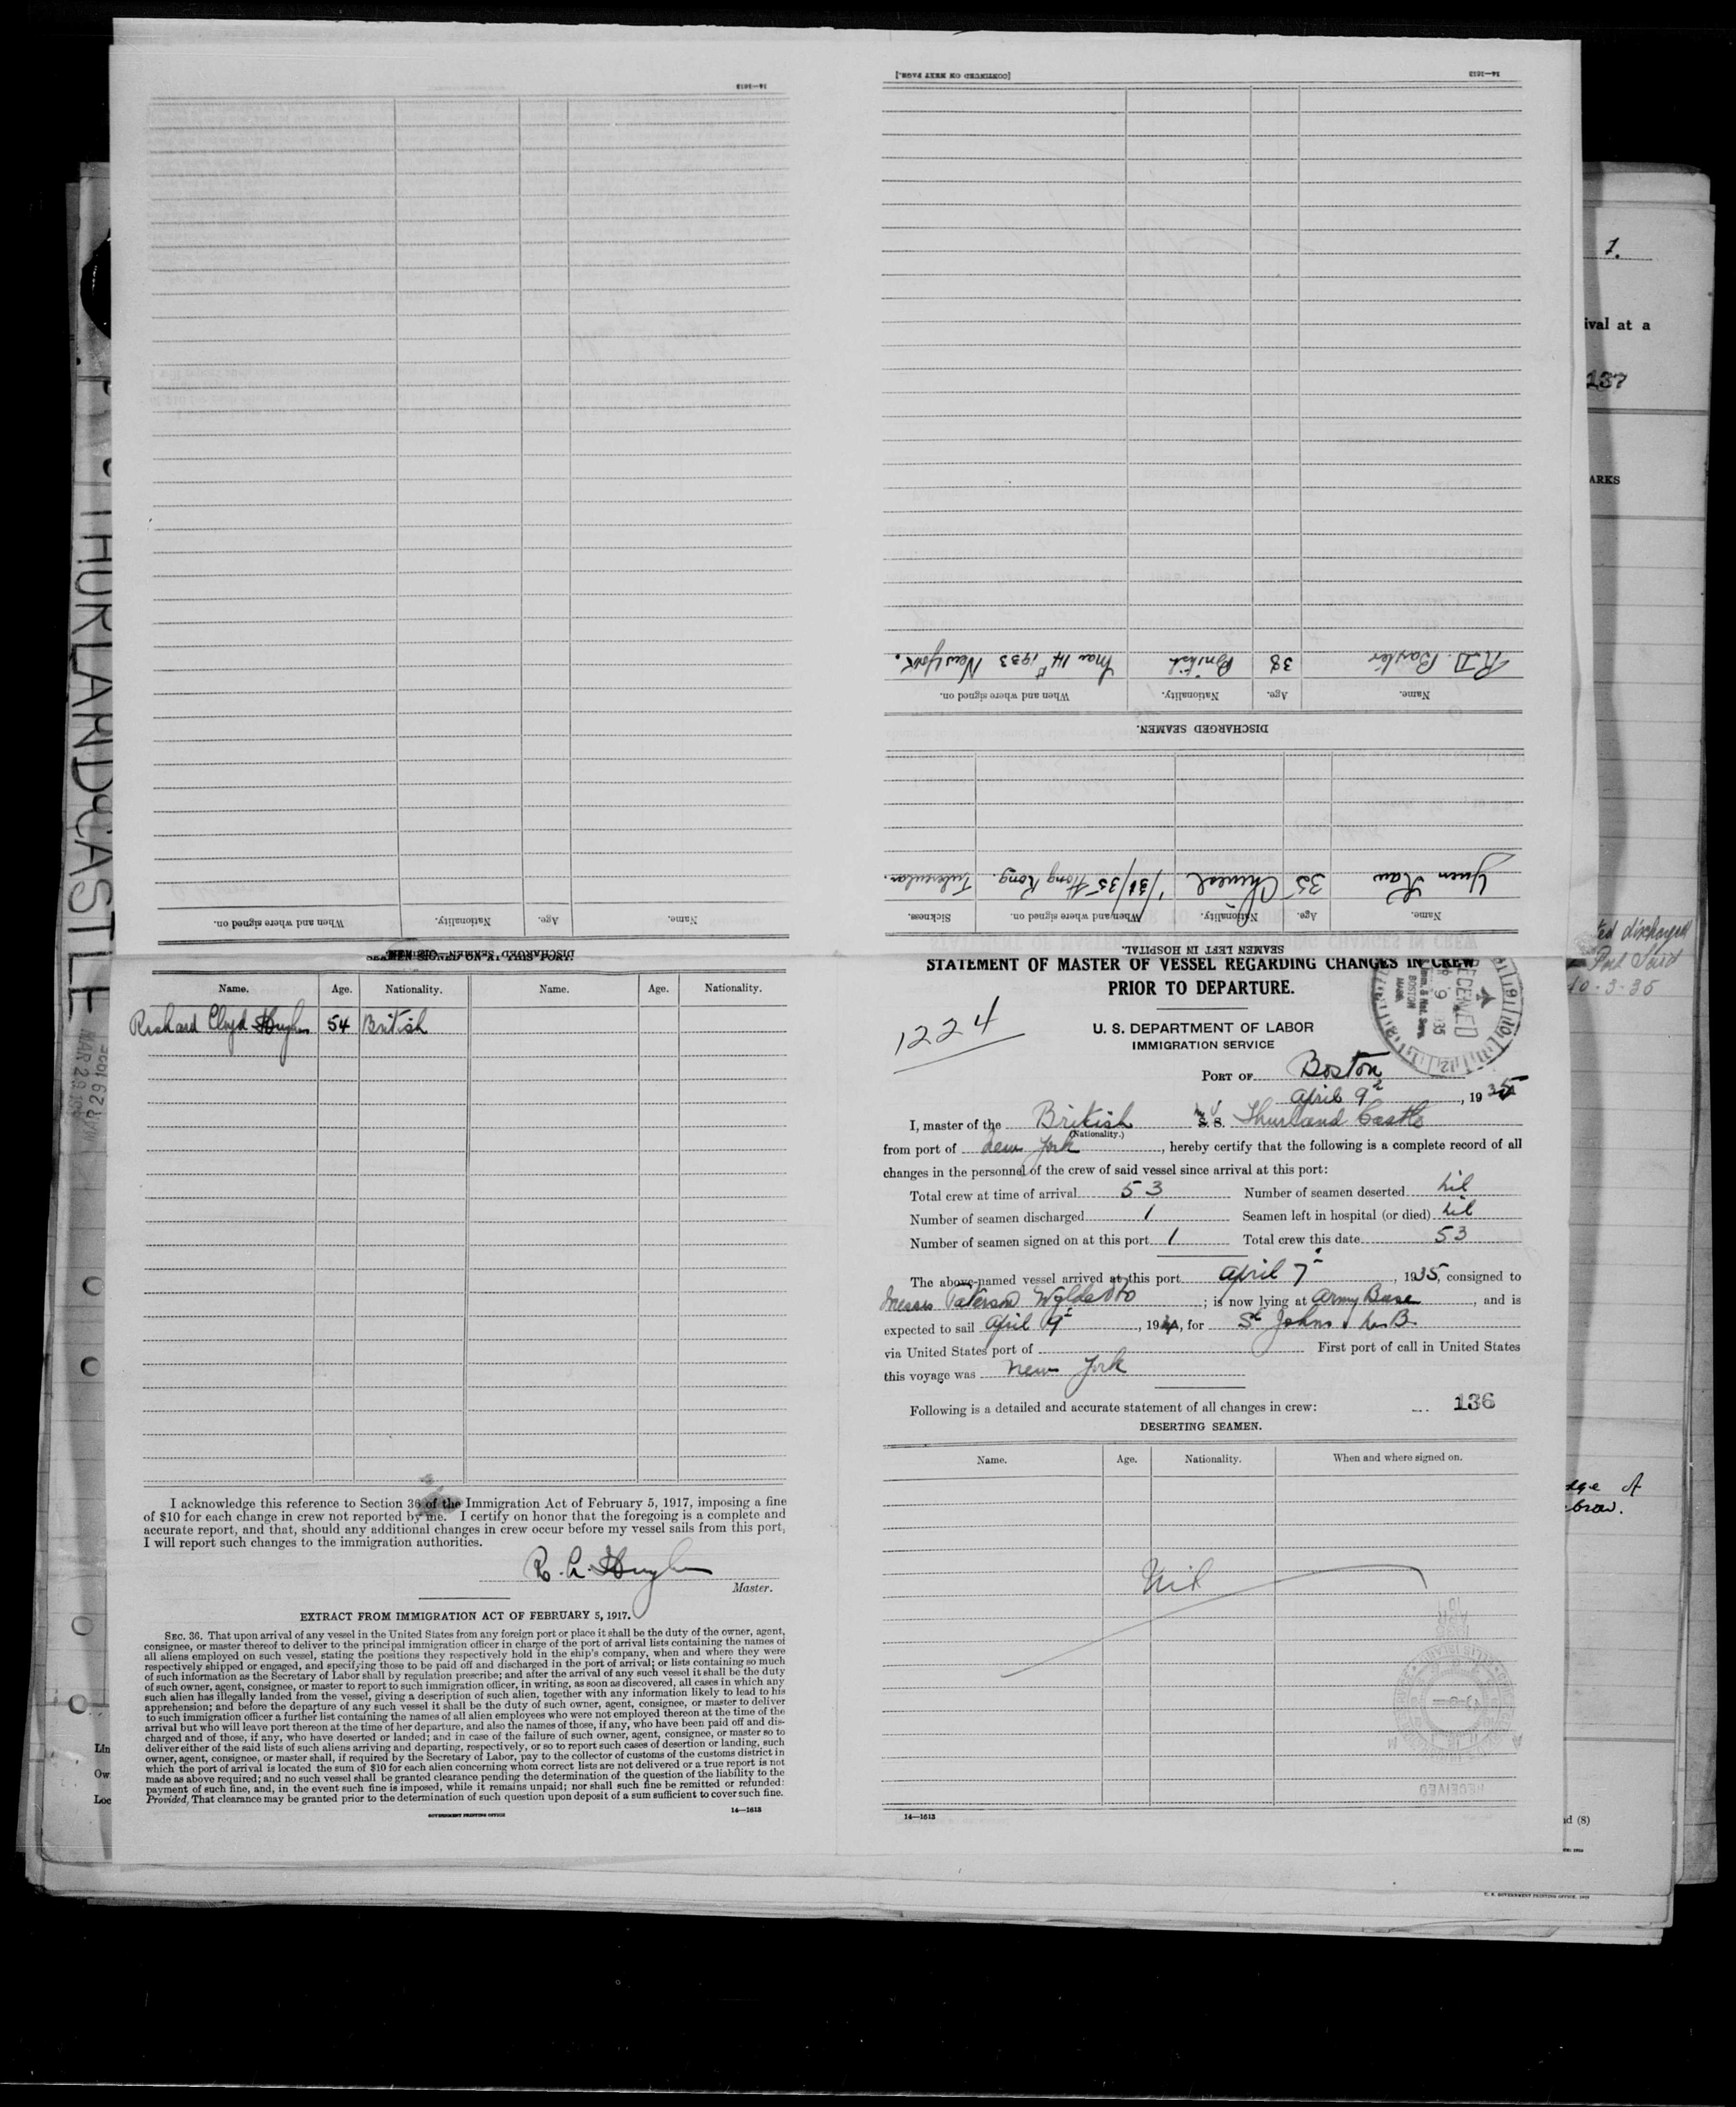 STATEMENT OF MASTER OF VESSEL REGARDING CHANGES IN CREW
PRIOR TO DEPARTURE.
1224
U. S. DEPARTMENT OF LABOR
IMMIGRATION SERVICE
RECEIVED
BOSTON
MASS.
PORT OF Boston
April 9, 1935
I, master of the British S. S. Thurland Castle
(Nationality.)
from port of New York, hereby certify that the following is a complete record of all
changes in the personnel of the crew of said vessel since arrival at this port:
Total crew at time of arrival 53 Number of seamen deserted Nil
Number of seamen discharged 1 Seamen left in hospital (or died) Nil
Number of seamen signed on at this port 1 Total crew this date 53
The above-named vessel arrived at this port April 7, 1935, consigned to
Messrs Paterson ; is now lying at Army Base, and is
expected to sail April 9, 19 , for St Johns. N.B.
via United States port of First port of call in United States
this voyage was New York
Following is a detailed and accurate statement of all changes in crew:
136
DESERTING SEAMEN.
Name. Age. Nationality. When and where signed on.
Nil
RECEIVED
14—1613
SEAMEN LEFT IN HOSPITAL.
Name. Age. Nationality. When and where signed on. Sickness.
Yuen Kau 35 Chinese 1/31/35 Hong Kong. Tubercular.
DISCHARGED SEAMEN.
Name. Age. Nationality. When and where signed on.
R.D. Baxter 38 British Mar 14th 1933 New York.
14—1613
[CONTINUED ON NEXT PAGE.]
DISCHARGED SEAMEN—
Name. Age. Nationality. When and where signed on.
14—1613
SEAMEN SIGNED ON AT THIS PORT.
Name. Age. Nationality. Name. Age. Nationality.
Richard Clwyd Hughes 54 British
I acknowledge this reference to Section 36 of the Immigration Act of February 5, 1917, imposing a fine
of $10 for each change in crew not reported by me. I certify on honor that the foregoing is a complete and
accurate report, and that, should any additional changes in crew occur before my vessel sails from this port,
I will report such changes to the immigration authorities.
R. C. Hughes
Master.
EXTRACT FROM IMMIGRATION ACT OF FEBRUARY 5, 1917.
SEC. 36. That upon arrival of any vessel in the United States from any foreign port or place it shall be the duty of the owner, agent,
consignee, or master thereof to deliver to the principal immigration officer in charge of the port of arrival lists containing the names of
all aliens employed on such vessel, stating the positions they respectively hold in the ship's company, when and where they were
respectively shipped or engaged, and specifying those to be paid off and discharged in the port of arrival; or lists containing so much
of such information as the Secretary of Labor shall by regulation prescribe; and after the arrival of any such vessel it shall be the duty
of such owner, agent, consignee, or master to report to such immigration officer, in writing, as soon as discovered, all cases in which any
such alien has illegally landed from the vessel, giving a description of such alien, together with any information likely to lead to his
apprehension; and before the departure of any such vessel it shall be the duty of such owner, agent, consignee, or master to deliver
to such immigration officer a further list containing the names of all alien employees who were not employed thereon at the time of the
arrival but who will leave port thereon at the time of her departure, and also the names of those, if any, who have been paid off and dis-
charged and of those, if any, who have deserted or landed; and in case of the failure of such owner, agent, consignee, or master so to
deliver either of the said lists of such aliens arriving and departing, respectively, or so to report such cases of desertion or landing, such
owner, agent, consignee, or master shall, if required by the Secretary of Labor, pay to the collector of customs of the customs district in
which the port of arrival is located the sum of $10 for each alien concerning whom correct lists are not delivered or a true report is not
made as above required; and no such vessel shall be granted clearance pending the determination of the question of the liability to the
payment of such fine, and, in the event such fine is imposed, while it remains unpaid; nor shall such fine be remitted or refunded:
Provided, That clearance may be granted prior to the determination of such question upon deposit of a sum sufficient to cover such fine.
GOVERNMENT PRINTING OFFICE 14—1613
THURLAND CASTLE
MAR 29 1935
1.
ival at a
137
ARKS
discharged
Port Said
10-3-35
Lin
Ow
Loc
nd (8)
U. S. GOVERNMENT PRINTING OFFICE